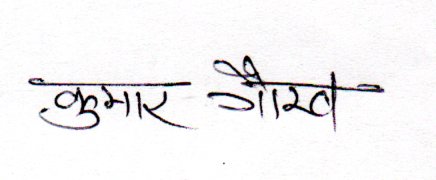 कुमार गौरव